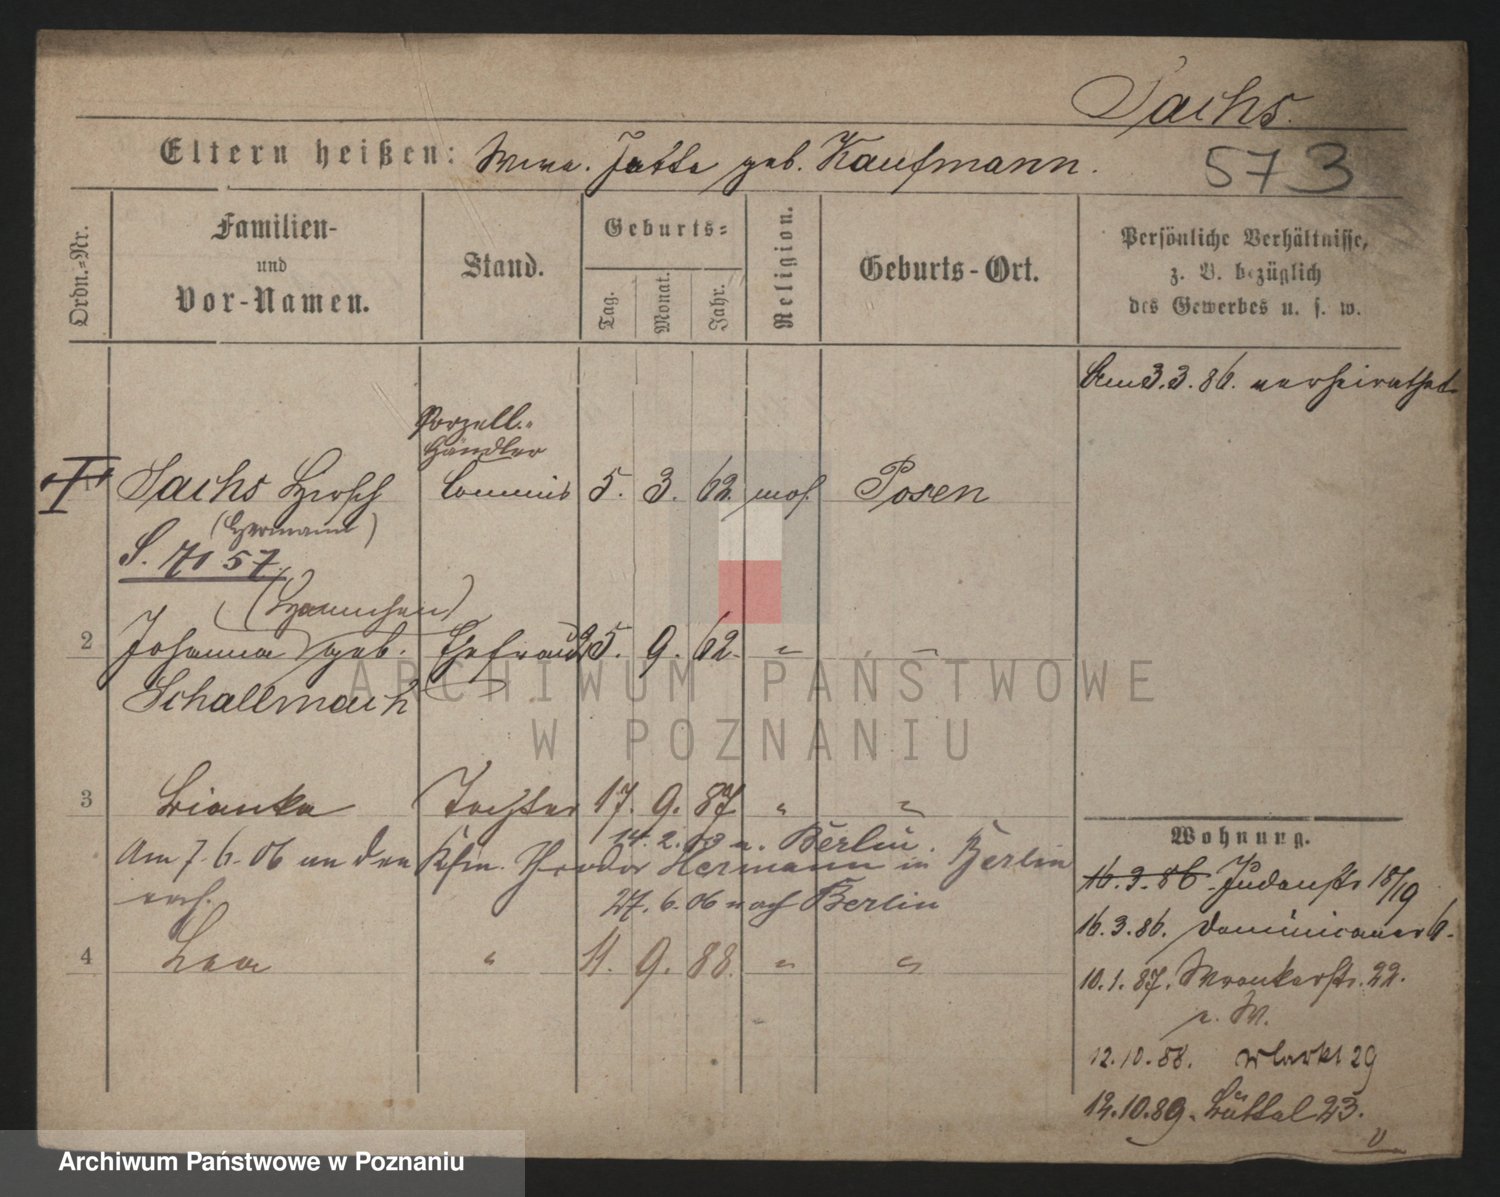 Sachs.
Eltern heißen: Wwe. Jette geb. Kaufmann.
573
Ordn.-Nr.
Familien-
und
Vor-Namen.
Stand.
Geburts-
Tag.
Monat.
Jahr.
Religion.
Geburts-Ort.
Persönliche Verhältnisse,
z. B. bezüglich
des Gewerbes u. s. w.
Am 3.3.86. verheirathet
Porzell.-
händler
Sachs Hirsch Commis 5. 3. 62. mos. Posen
(Hermann)
S. 7157
(Hannchen)
2 Johanna geb. Ehefrau 25. 9. 62. " "
Schallmach
3 Bianka Tochter 17. 9. 87. " "
14. 2. n. Berlin.
Am 7.6.06 an den Kfm. Theodor Hermann in Berlin
verh. 27.6.06 nach Berlin
4 Lea " 11. 9. 88. " "
Wohnung.
16.3.86. Judenstr 18/19
16.3.86. Dominicaner 6.
10.1.87. Wronkerstr. 22.
r. W.
12.10.88. Markt 29
12.10.89. Büttel 23.
ARCHIWUM PAŃSTWOWE
W POZNANIU
Archiwum Państwowe w Poznaniu